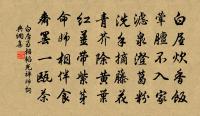 白屋炊香飯
葷膻不入家
濾泉澄葛粉
洗手摘藤花
青芥除黃葉
紅薑帶紫芽
命師相伴食
齋罷一甌茶
白居易招韜光禪師